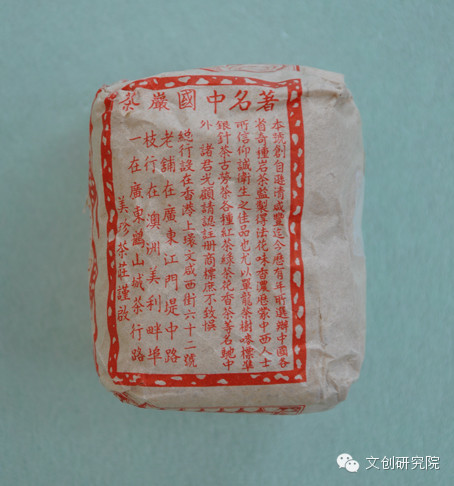 著名中國巖茶
本號創自遜清咸豐迄今歷有年所選辦中國各
省奇種岩茶監製得法花味香濃歷蒙中西人士
所信仰誠衛生之佳品也尤以單龍茶樹嘜標準
銀針茶古勞茶各種紅茶綠茶花香茶著名馳中
外 諸君光顧請認註冊商標庶不致悞
總行設在香港上環文咸西街六十二號
老舖在廣東江門堤中路
枝行在澳洲美利畔埠
一在廣東鶴山城茶行路
美珍茶莊謹啟
文创研究院